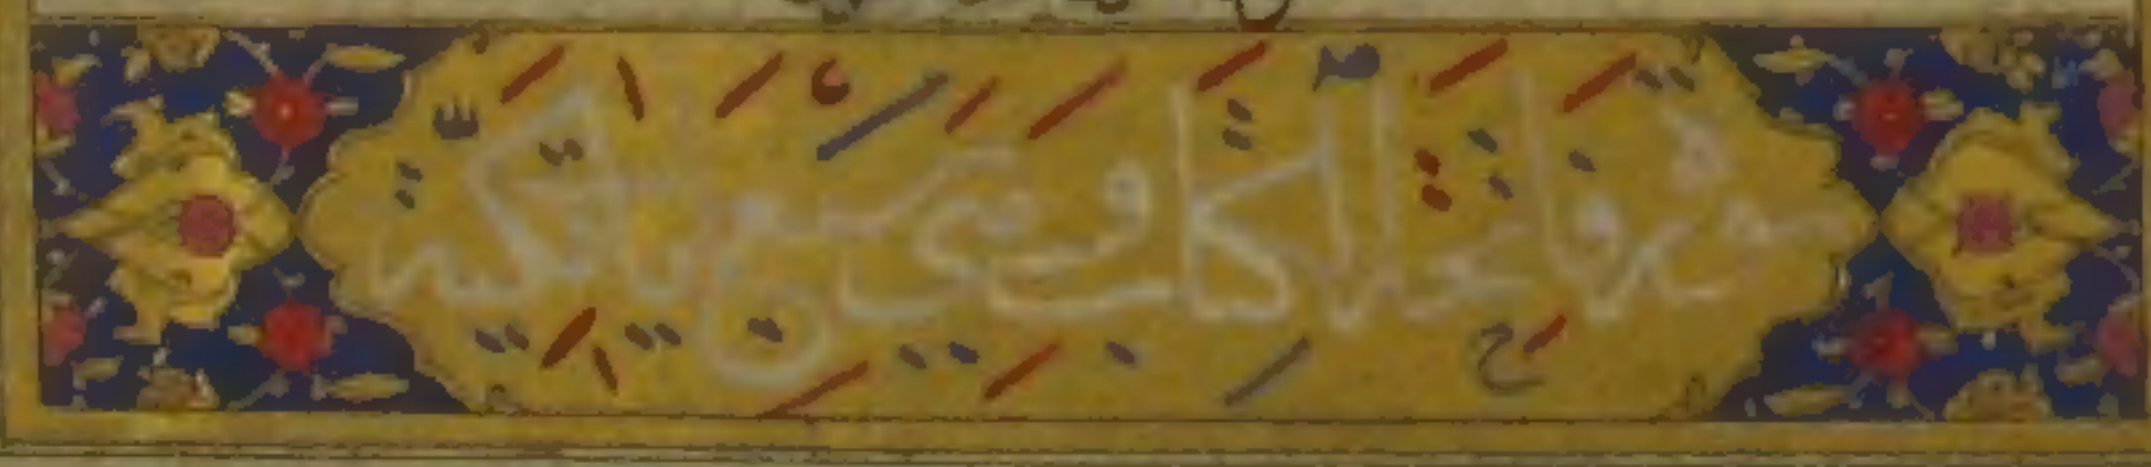 سورة فاتحة الكتاب وهي سبع آيات مكية